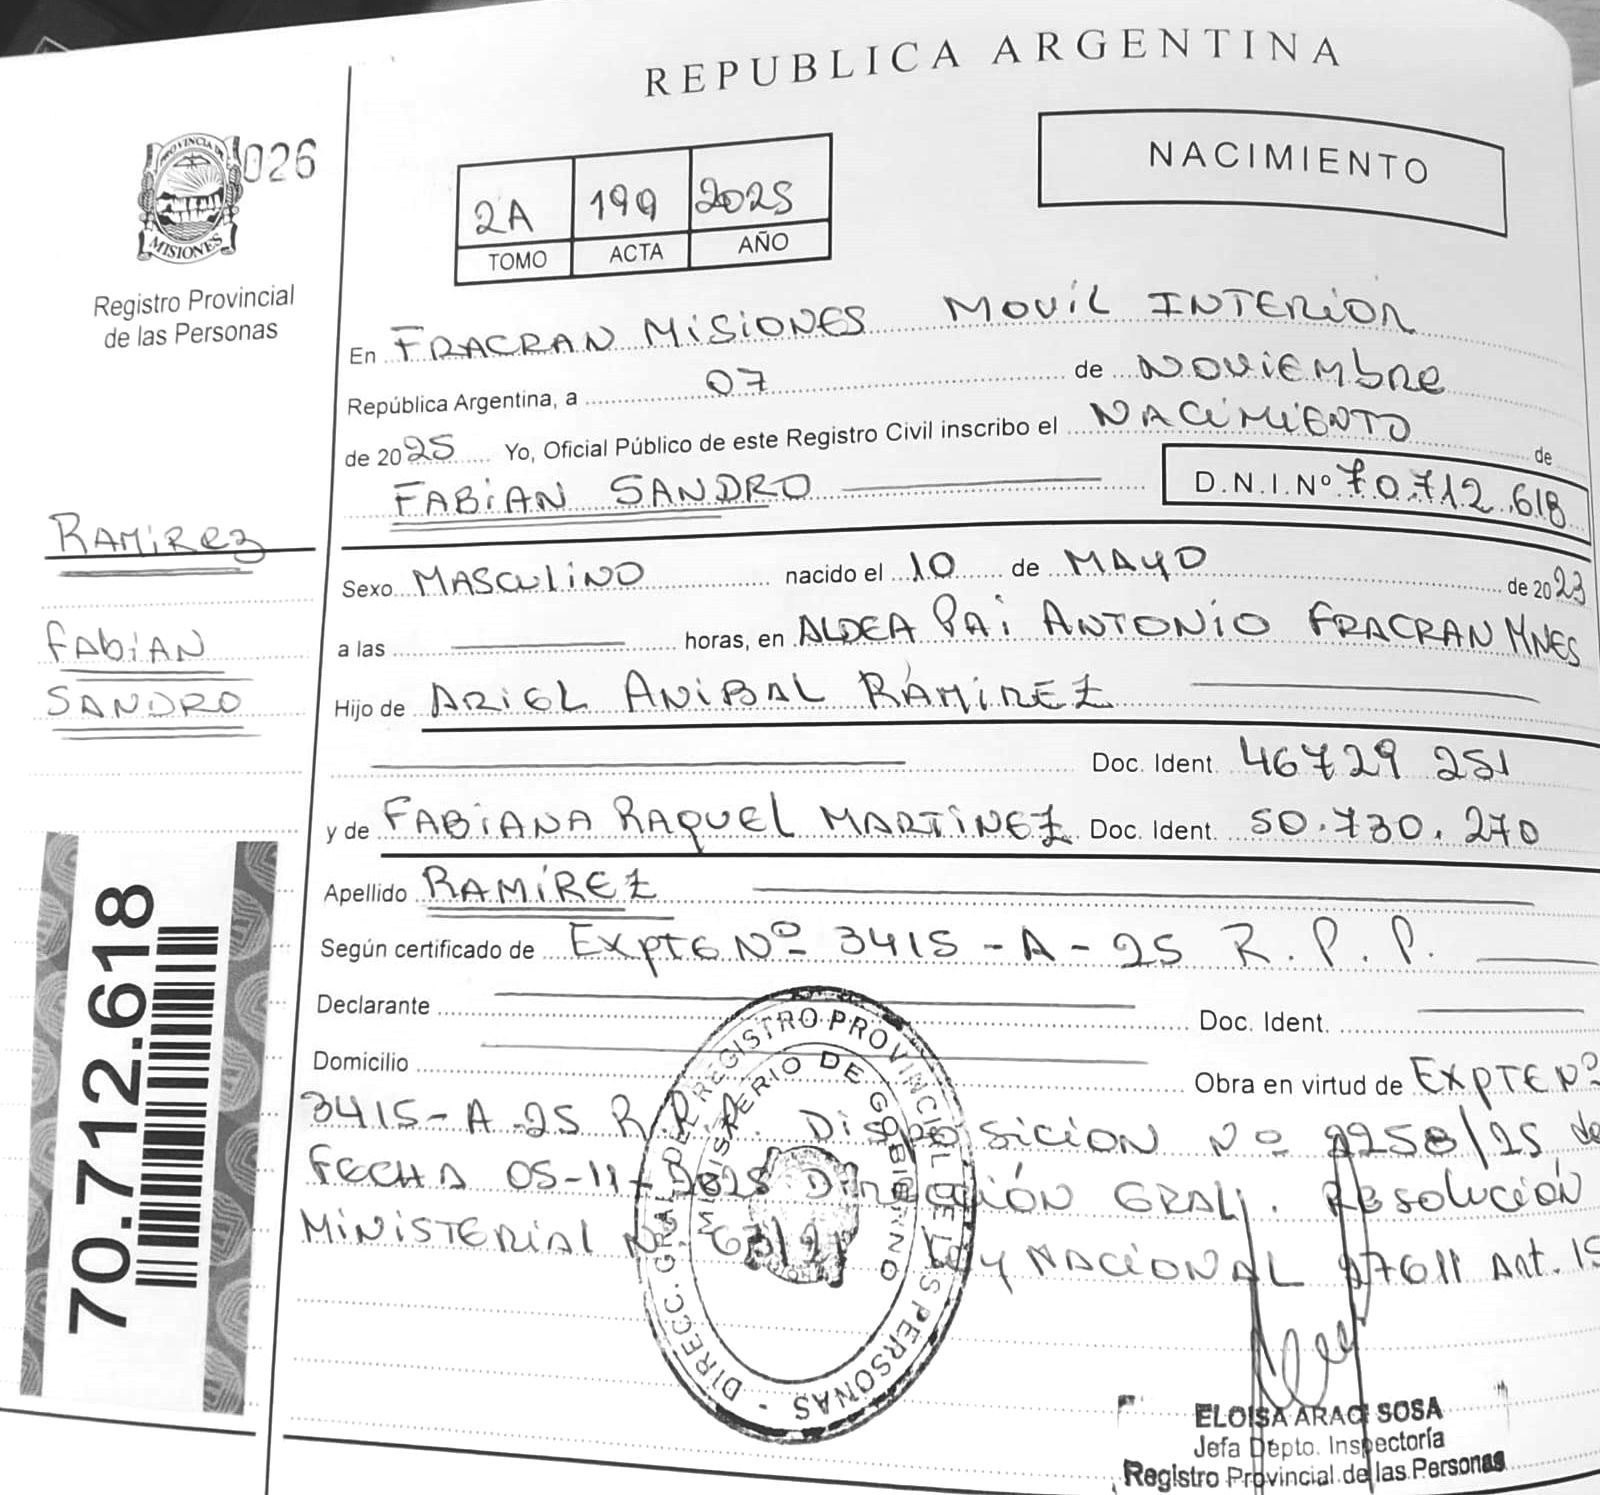 REPUBLICA ARGENTINA
NACIMIENTO
PROVINCIA DE
MISIONES
026
Registro Provincial
de las Personas
2A 199 2025
TOMO ACTA AÑO
En FRACRAN MISIONES MOVIL INTERIOR
República Argentina, a 07 de NOVIEMbRE
de 2025 Yo, Oficial Público de este Registro Civil inscribo el NACIMIENTO de
FABIAN SANDRO D.N.I.Nº 70.712.618
RAMIREZ
FAbIAN
SANDRO
Sexo MASCULINO nacido el 10 de MAYO de 2023
a las horas, en ALDEA PAI ANTONIO FRACRAN MNES
Hijo de ARIEL ANIBAL RAMIREZ
Doc. Ident. 46729 251
y de FABIANA RAQUEL MARTINEZ Doc. Ident. 50.730.270
Apellido RAMÍREZ
Según certificado de EXPTE Nº 3415-A-25 R.P.P.
Declarante Doc. Ident.
Domicilio Obra en virtud de EXPTE Nº
3415-A-25 R.P.P. DISPOSICION Nº 2258/25 de
FECHA 05-11-2025 DIRECCIÓN GRAL. RESOLUCIÓN
MINISTERIAL LEY NACIONAL 27611 ART. 15
70.712.618
DIRECC. GRAL. DEL REGISTRO PROVINCIAL DE LAS PERSONAS
MINISTERIO DE GOBIERNO
ELOISA ARACI SOSA
Jefa Depto. Inspectoría
Registro Provincial de las Personas